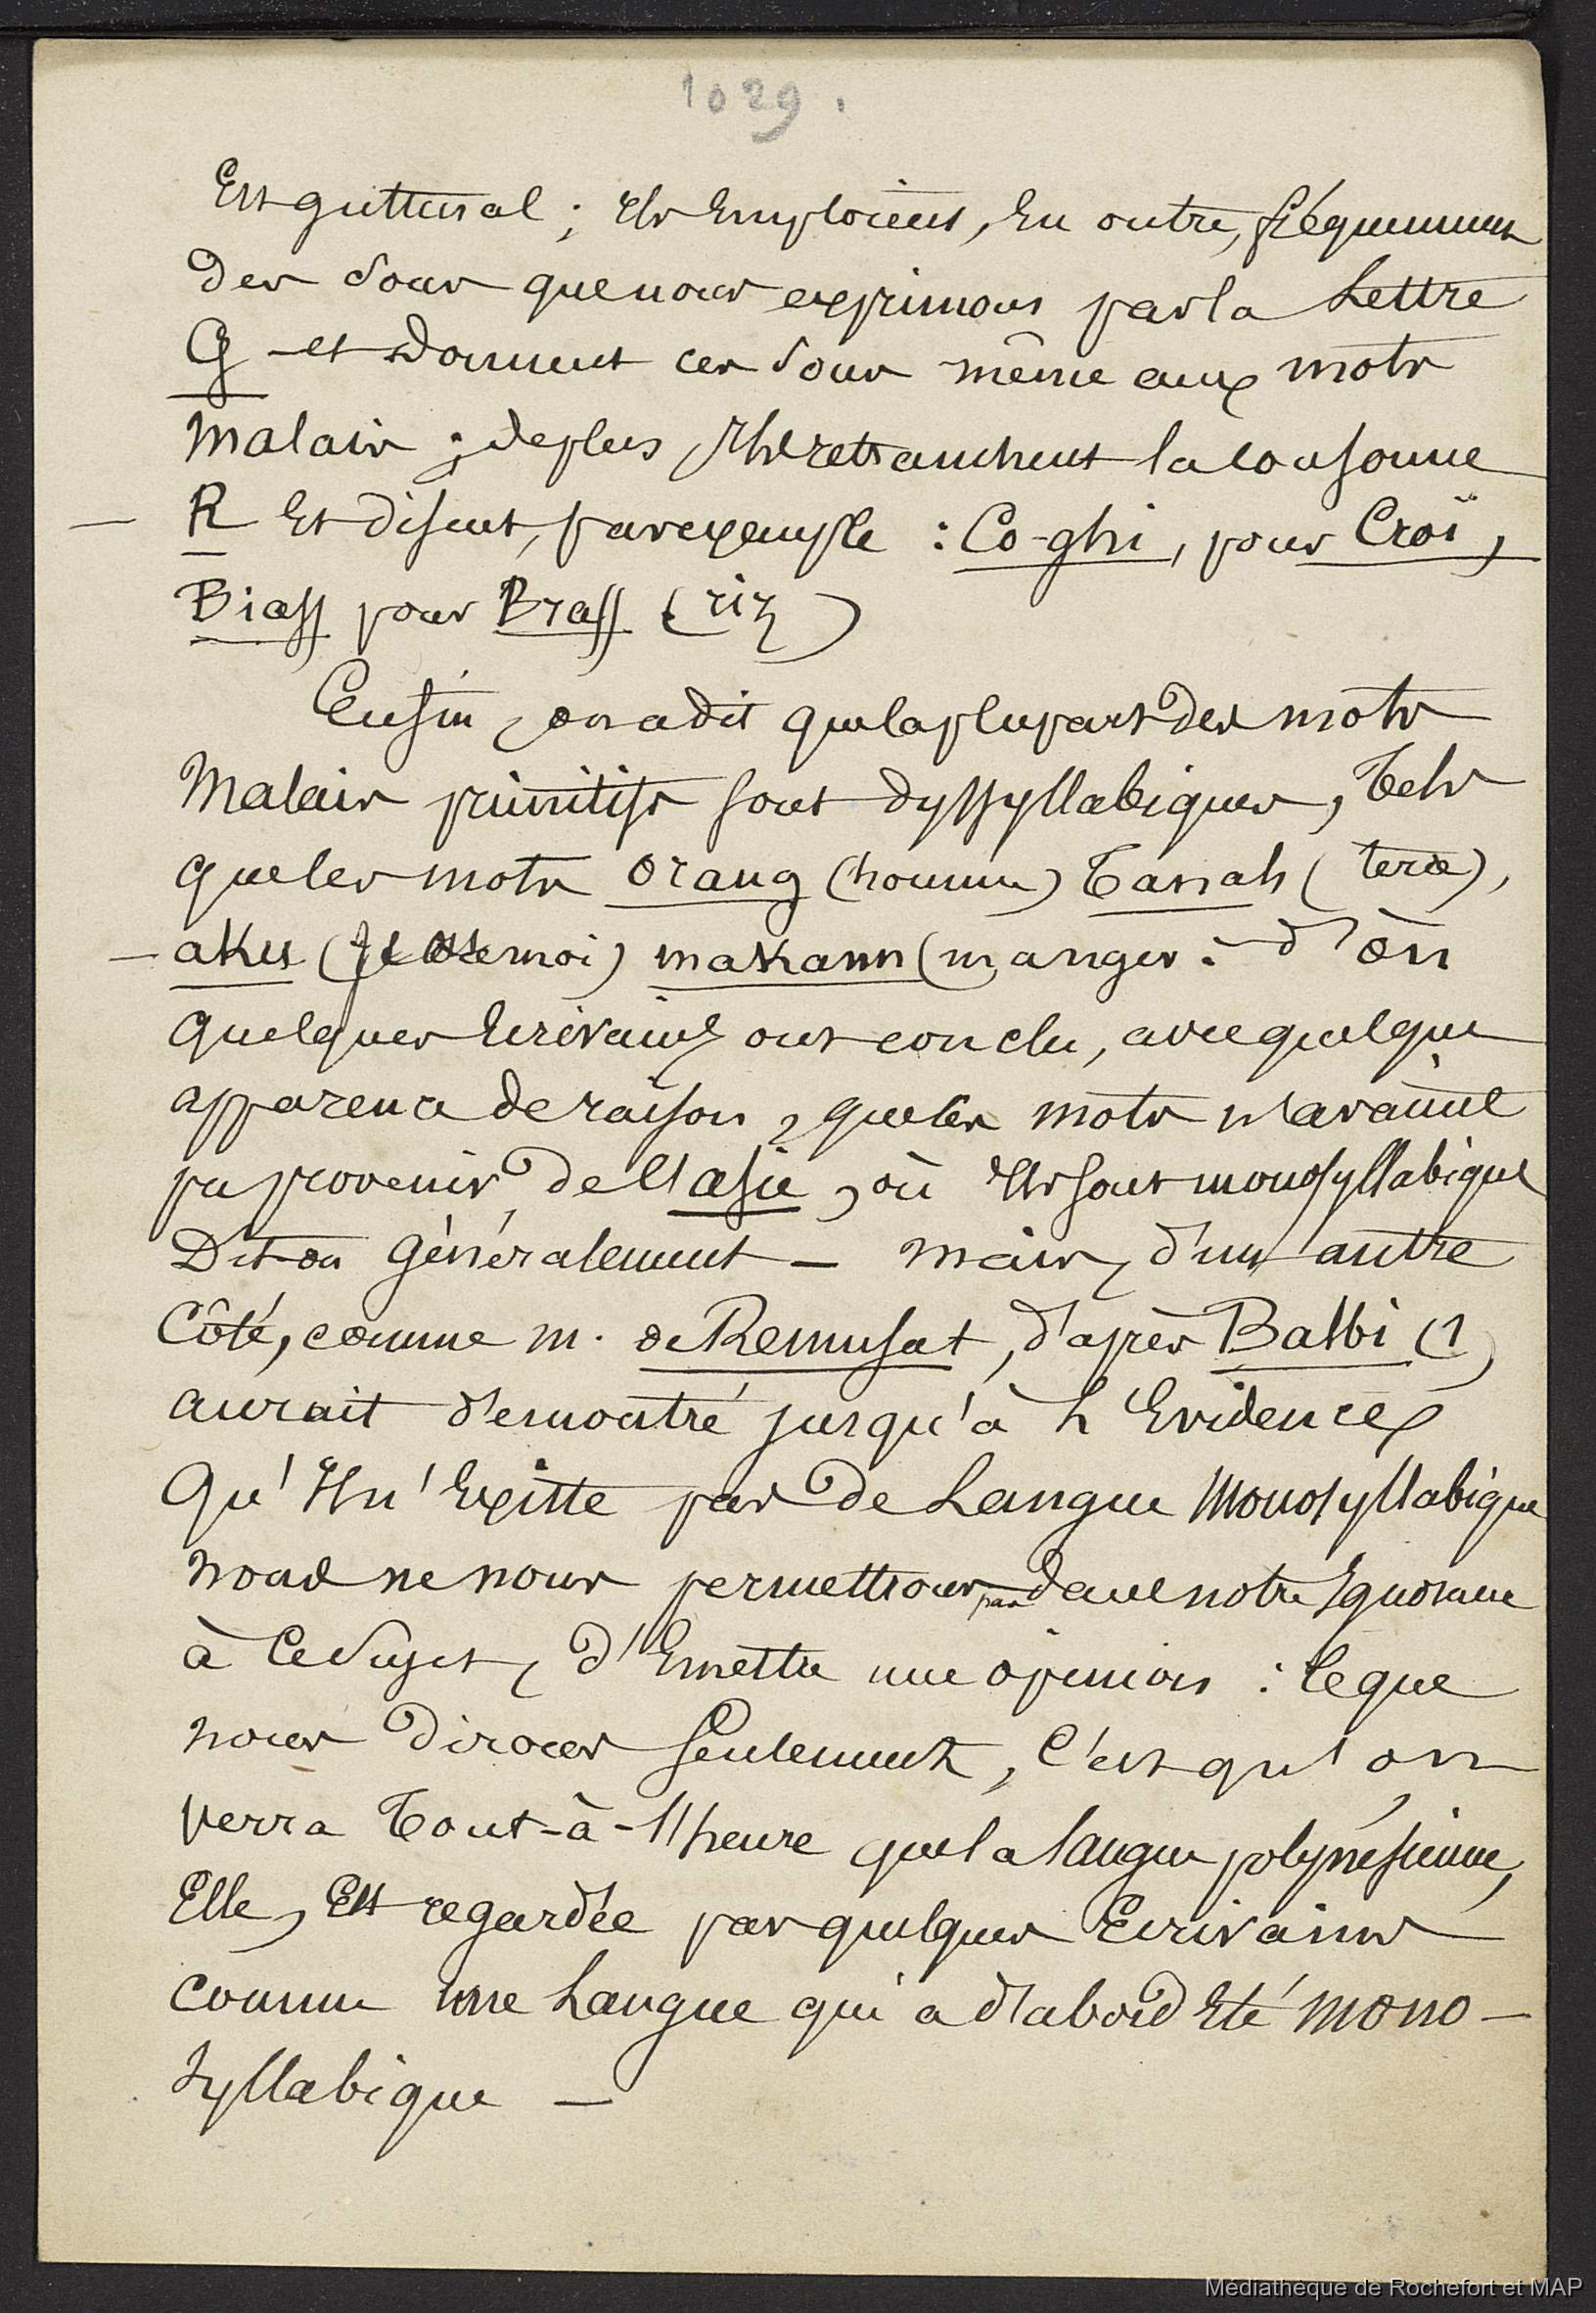 1029.
Est guttural ; Ils Emploient, En outre, fréquemment
des sons que nous exprimons par la Lettre
G - et donnent ces sons même aux mots
Malais ; de plus, Ils retranchent la consonne
— R Et disent, par exemple : Co-ghi, pour Croï,
Biass pour Brass (riz)
Enfin, on a dit que la plupart des mots
Malais primitifs sont dyssyllabiques, Tels
que les mots Orang (homme) Tanah (terre),
— aku (Je moi) makann (manger : d'où
quelques Ecrivains ont conclu, avec quelque
apparence de raison, que les mots n'avaient
pu provenir de l'asie, où Ils sont monosyllabiques
Dit-on généralement — mais, d'un autre
Côté, comme m. de Remusat, d'après Balbi (1)
aurait démontré jusqu'à L'Evidence
Qu'Il n'Existe pas de Langue Monosyllabique
nous ne nous permettrons pas dans notre Ignorance
à ce sujet, d'Emettre une opinion : Ce que
nous dirons seulement, C'est qu'on
verra Tout-à-l'heure que la langue polynésienne,
Elle, Est regardée par quelques Ecrivains
comme une Langue qui a d'abord Eté mono-
syllabique —
Médiathèque de Rochefort et MAP